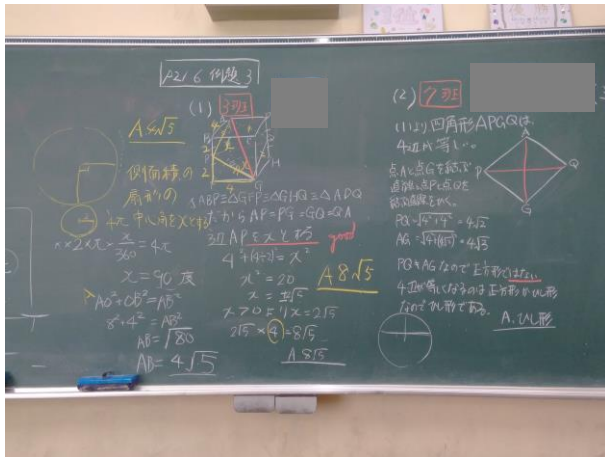 P216 例題3
A 4√5
側面積の
扇形の
中心角をxとする
x = 90 度
AO²+OB²=AB²
8²+4²=AB²
AB=√80
AB=4√5
(1) 3班
△ABP≡△GFP≡△GHQ≡△ADQ
だからAP=PG=GQ=QA
辺APをxとする
good
x²=20
x=±√5
2√5×4=8√5
A 8√5
A 8√5
(2) 7班
(1)より四角形APGQは
4辺が等しい。
点Aと点Gをむすぶ
直線と点Pと点Qを
A
P
Q
G
PQ=√4²+4²=4√2
PQ≠AGなので正方形ではない
4辺が等しくなるのは正方形かひし形
なのでひし形である。
A. ひし形